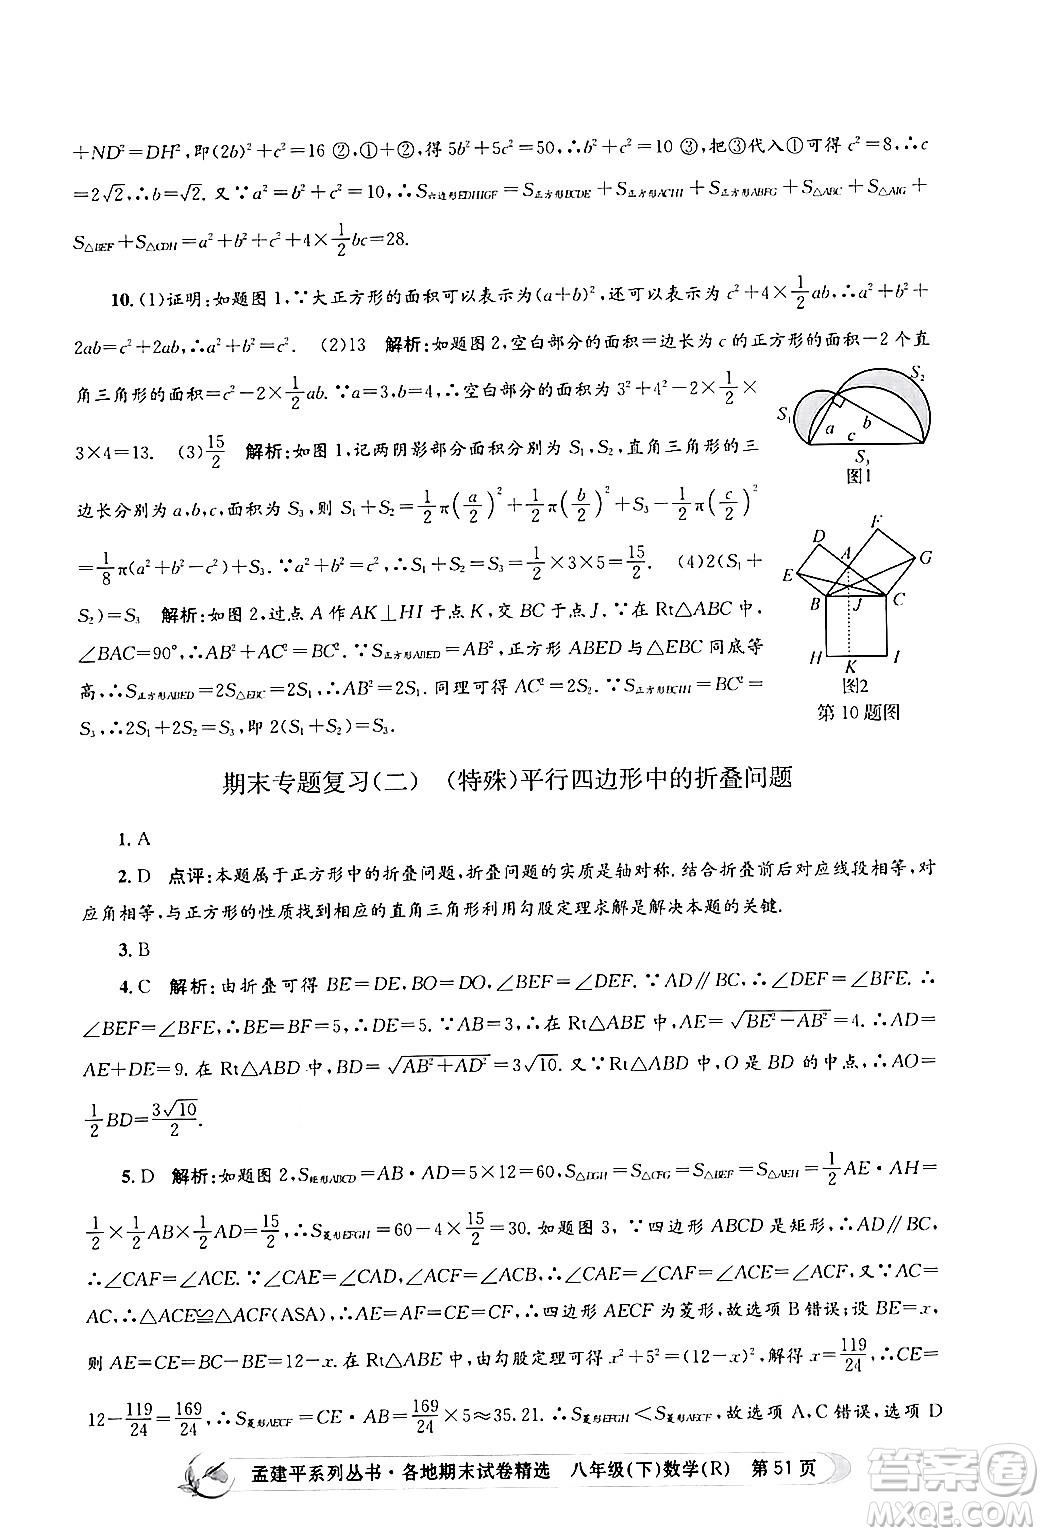 +ND²=DH²,即(2b)²+c²=16 ②,①+②,得5b²+5c²=50,∴b²+c²=10 ③,把③代入①可得c²=8,∴c
=2√2,∴b=√2. 又∵a²=b²+c²=10,∴S六边形EDHIGF=S正方形BCDE+S正方形ACHI+S正方形ABFG+S△ABC+S△AIG+
S△BEF+S△CDH=a²+b²+c²+4×1/2bc=28.
10.(1)证明:如题图1,∵大正方形的面积可以表示为(a+b)²,还可以表示为c²+4×1/2ab,∴a²+b²+
2ab=c²+2ab,∴a²+b²=c². (2)13 解析:如题图2,空白部分的面积=边长为c的正方形的面积-2个直
角三角形的面积=c²-2×1/2ab.∵a=3,b=4,∴空白部分的面积为3²+4²-2×1/2×
3×4=13. (3)15/2 解析:如图1,记两阴影部分面积分别为S₁,S₂,直角三角形的三
边长分别为a,b,c,面积为S₃,则S₁+S₂=1/2π(a/2)²+1/2π(b/2)²+S₃-1/2π(c/2)²
=1/8π(a²+b²-c²)+S₃.∵a²+b²=c²,∴S₁+S₂=S₃=1/2×3×5=15/2. (4)2(S₁+
S₂)=S₃ 解析:如图2,过点A作AK⊥HI于点K,交BC于点J.∵在Rt△ABC中,
∠BAC=90°,∴AB²+AC²=BC².∵S正方形ABED=AB²,正方形ABED与△EBC同底等
高,∴S正方形ABED=2S△EBC=2S₁,∴AB²=2S₁.同理可得AC²=2S₂.∵S正方形BCIH=BC²=
S₃,∴2S₁+2S₂=S₃,即2(S₁+S₂)=S₃.
S₁
S₂
a
b
c
S₃
图1
D
F
A
G
E
B
J
C
H
K
I
图2
第10题图
期末专题复习(二) (特殊)平行四边形中的折叠问题
1. A
2. D 点评:本题属于正方形中的折叠问题,折叠问题的实质是轴对称.结合折叠前后对应线段相等,对
应角相等,与正方形的性质找到相应的直角三角形利用勾股定理求解是解决本题的关键.
3. B
4. C 解析:由折叠可得BE=DE,BO=DO,∠BEF=∠DEF.∵AD∥BC,∴∠DEF=∠BFE.∴
∠BEF=∠BFE,∴BE=BF=5,∴DE=5. ∵AB=3,∴在Rt△ABE中,AE=√(BE²-AB²)=4.∴AD=
AE+DE=9. 在Rt△ABD中,∴BD=√(AB²+AD²)=3√10. 又∵在Rt△ABD中,O是BD的中点,∴AO=
1/2BD=3√10/2.
5. D 解析:如题图2,S矩形ABCD=AB·AD=5×12=60,S△DGH=S△CFG=S△BEF=S△AEH=1/2AE·AH=
1/2×1/2AB×1/2AD=15/2,∴S菱形EFGH=60-4×15/2=30. 如题图3,∵四边形ABCD是矩形,∴AD∥BC,
∴∠CAF=∠ACE.∵∠CAF=∠CAD,∠ACE=∠ACB,∴∠CAE=∠CAF=∠ACE=∠ACF,又∵AC=
AC,∴△ACE≌△ACF(ASA),∴AE=AF=CE=CF,∴四边形AECF为菱形,故选项B错误;设BE=x,
则AE=CE=BC-BE=12-x.在Rt△ABE中,由勾股定理可得x²+5²=(12-x)²,解得x=119/24,∴CE=
12-119/24=169/24,∴S菱形AECF=CE·AB=169/24×5≈35.21,∴S菱形EFGH<S菱形AECF,故选项A,C错误,选项D
孟建平系列丛书·各地期末试卷精选 八年级(下)数学(R) 第51页
答案圈
MXQE.COM